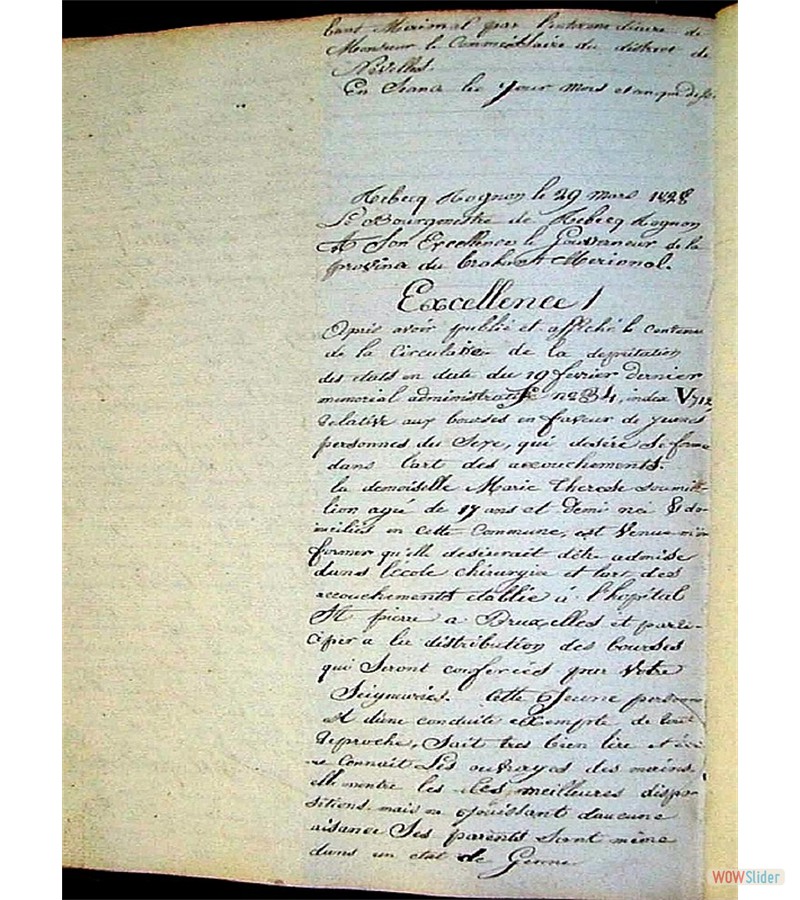 bant Merimal par l'intermediaire de
Monsieur le Commissaire du district de
Nivelles.
En Seance les jour mois et an que dessus
Rebecq Rognon le 29 mars 1828
Le Bourgmestre de Rebecq Rognon
A Son Excellence le Gouverneur de la
province du brabant Merional.
Excellence !
Apris avoir publié et affiché le contenu
de la Circulaire de la deputation
des etats en date du 19 fevrier dernier
memorial administratif n° 34, index V 712
relative aux bourses en faveur de jeunes
personnes du Sexe, qui desire se former
dans l'art des accouchements.
la demoiselle Marie Therese
agée de 17 ans et demi née & do-
miciliés en cette Commune, est Venue m'in
former qu'elle desirerait d'etre admise
dans l'école chirurgie et l'art des
accouchements etablie à l'hopital
St pierre a Bruxelles et parti-
ciper a la distribution des bourses
qui Seront conferiés par Votre
Seigneurie. Cette Jeune personne
est d'une conduite exempte de tout
Reproche, Sait tres bien lire et écri
re connait Les ouvrages des mains
elle montre les Les meilleures dispo-
sitions. mais ne jouissant d'aucune
aisance Ses parents Sont même
dans un etat de Genne
WOWSlider